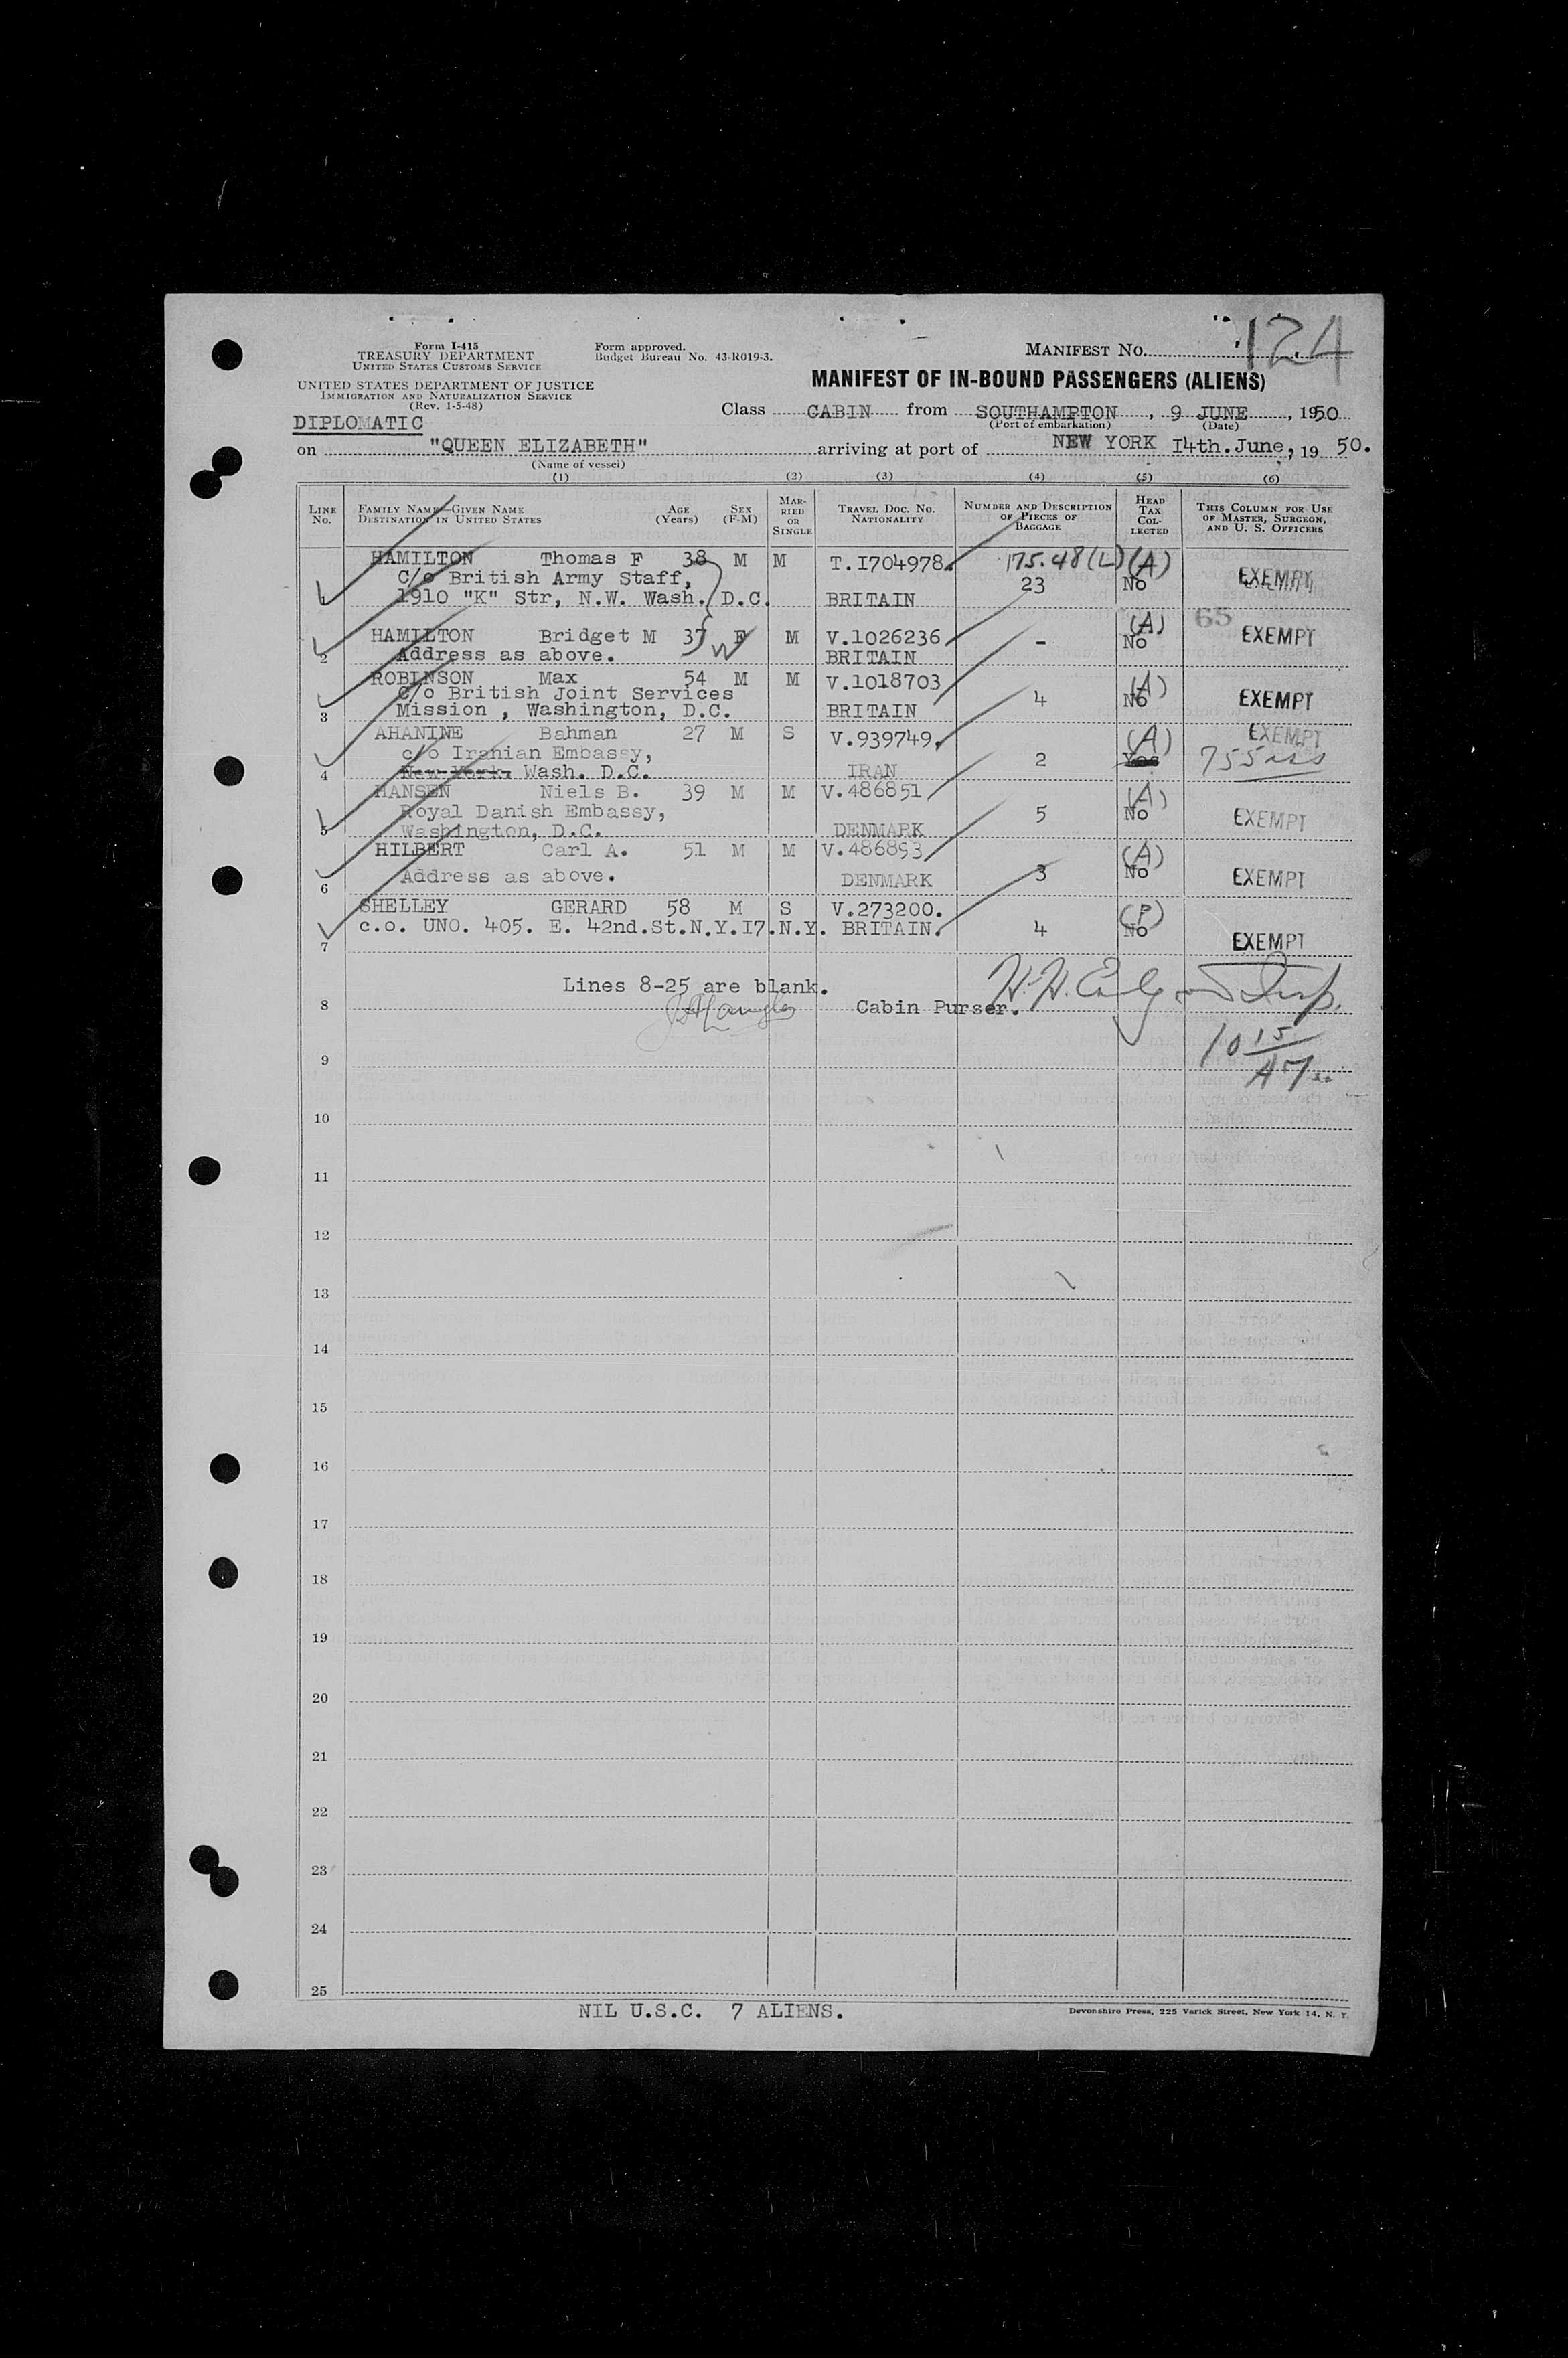 Form I-415
TREASURY DEPARTMENT
UNITED STATES CUSTOMS SERVICE
UNITED STATES DEPARTMENT OF JUSTICE
IMMIGRATION AND NATURALIZATION SERVICE
(Rev. 1-5-48)
Form approved.
Budget Bureau No. 43-R019-3.
MANIFEST NO. 124
MANIFEST OF IN-BOUND PASSENGERS (ALIENS)
DIPLOMATIC
Class CABIN from SOUTHAMPTON, 9 JUNE, 1950
(Port of embarkation) (Date)
on "QUEEN ELIZABETH" arriving at port of NEW YORK I4th.June, 19 50.
(Name of vessel)
(1) (2) (3) (4) (5) (6)
LINE NO. FAMILY NAME—GIVEN NAME DESTINATION IN UNITED STATES AGE (Years) SEX (F-M) MARRIED OR SINGLE TRAVEL DOC. NO. NATIONALITY NUMBER AND DESCRIPTION OF PIECES OF BAGGAGE HEAD TAX COLLECTED THIS COLUMN FOR USE OF MASTER, SURGEON, AND U. S. OFFICERS
HAMILTON Thomas F 38 M M T.I704978. 175.48(L) (A)
C/o British Army Staff, 23 No EXEMPT
1 1910 "K" Str, N.W. Wash. D.C. BRITAIN
65
HAMILTON Bridget M 37 F M V.1026236 - (A) No EXEMPT
2 Address as above. BRITAIN
ROBINSON Max 54 M M V.1018703
C/o British Joint Services 4 (A) No EXEMPT
3 Mission , Washington, D.C. BRITAIN
AHANINE Bahman 27 M S V.939749. (A) EXEMPT
c/o Iranian Embassy, 2 Yes
4 New York, Wash. D.C. IRAN
HANSEN Niels B. 39 M M V.486851 (A)
Royal Danish Embassy, 5 No EXEMPT
5 Washington, D.C. DENMARK
HILBERT Carl A. 51 M M V.486893 (A)
6 Address as above. DENMARK 3 No EXEMPT
SHELLEY GERARD 58 M S V.273200. (P)
c.o. UNO. 405. E. 42nd.St.N.Y.I7.N.Y. BRITAIN. 4 No
7 EXEMPT
Lines 8-25 are blank.
8 Cabin Purser.
10 15
9
10
11
12
13
14
15
16
17
18
19
20
21
22
23
24
25
NIL U.S.C. 7 ALIENS.
Devonshire Press, 225 Varick Street, New York 14, N. Y.